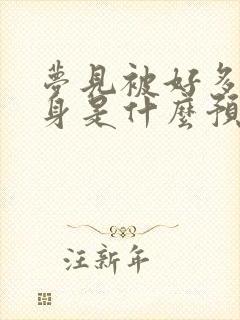 夢見被好多
身是什麼預
汪新年